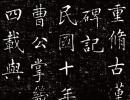 重脩古革
碑記
民國十年
曹公掌
四載與